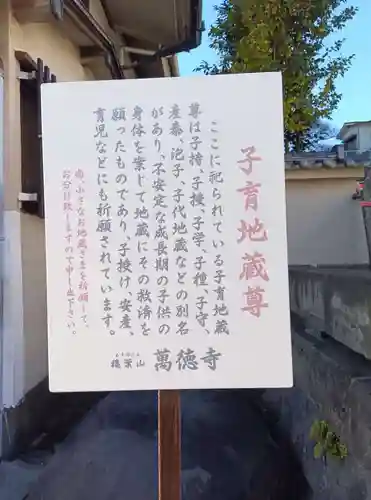 子育地蔵尊
ここに祀られている子育地蔵
尊は子持、子授、子孕、子種、子守、
産泰、泡子、子代地蔵などの別名
があり、不安定な成長期の子供の
身体を案じて地蔵にその救済を
願ったものであり、子授け、安産、
育児などにも祈願されています。
尚、小さなお地蔵さまを祈願して、
お分け致しますので申し出下さい。
萬徳寺